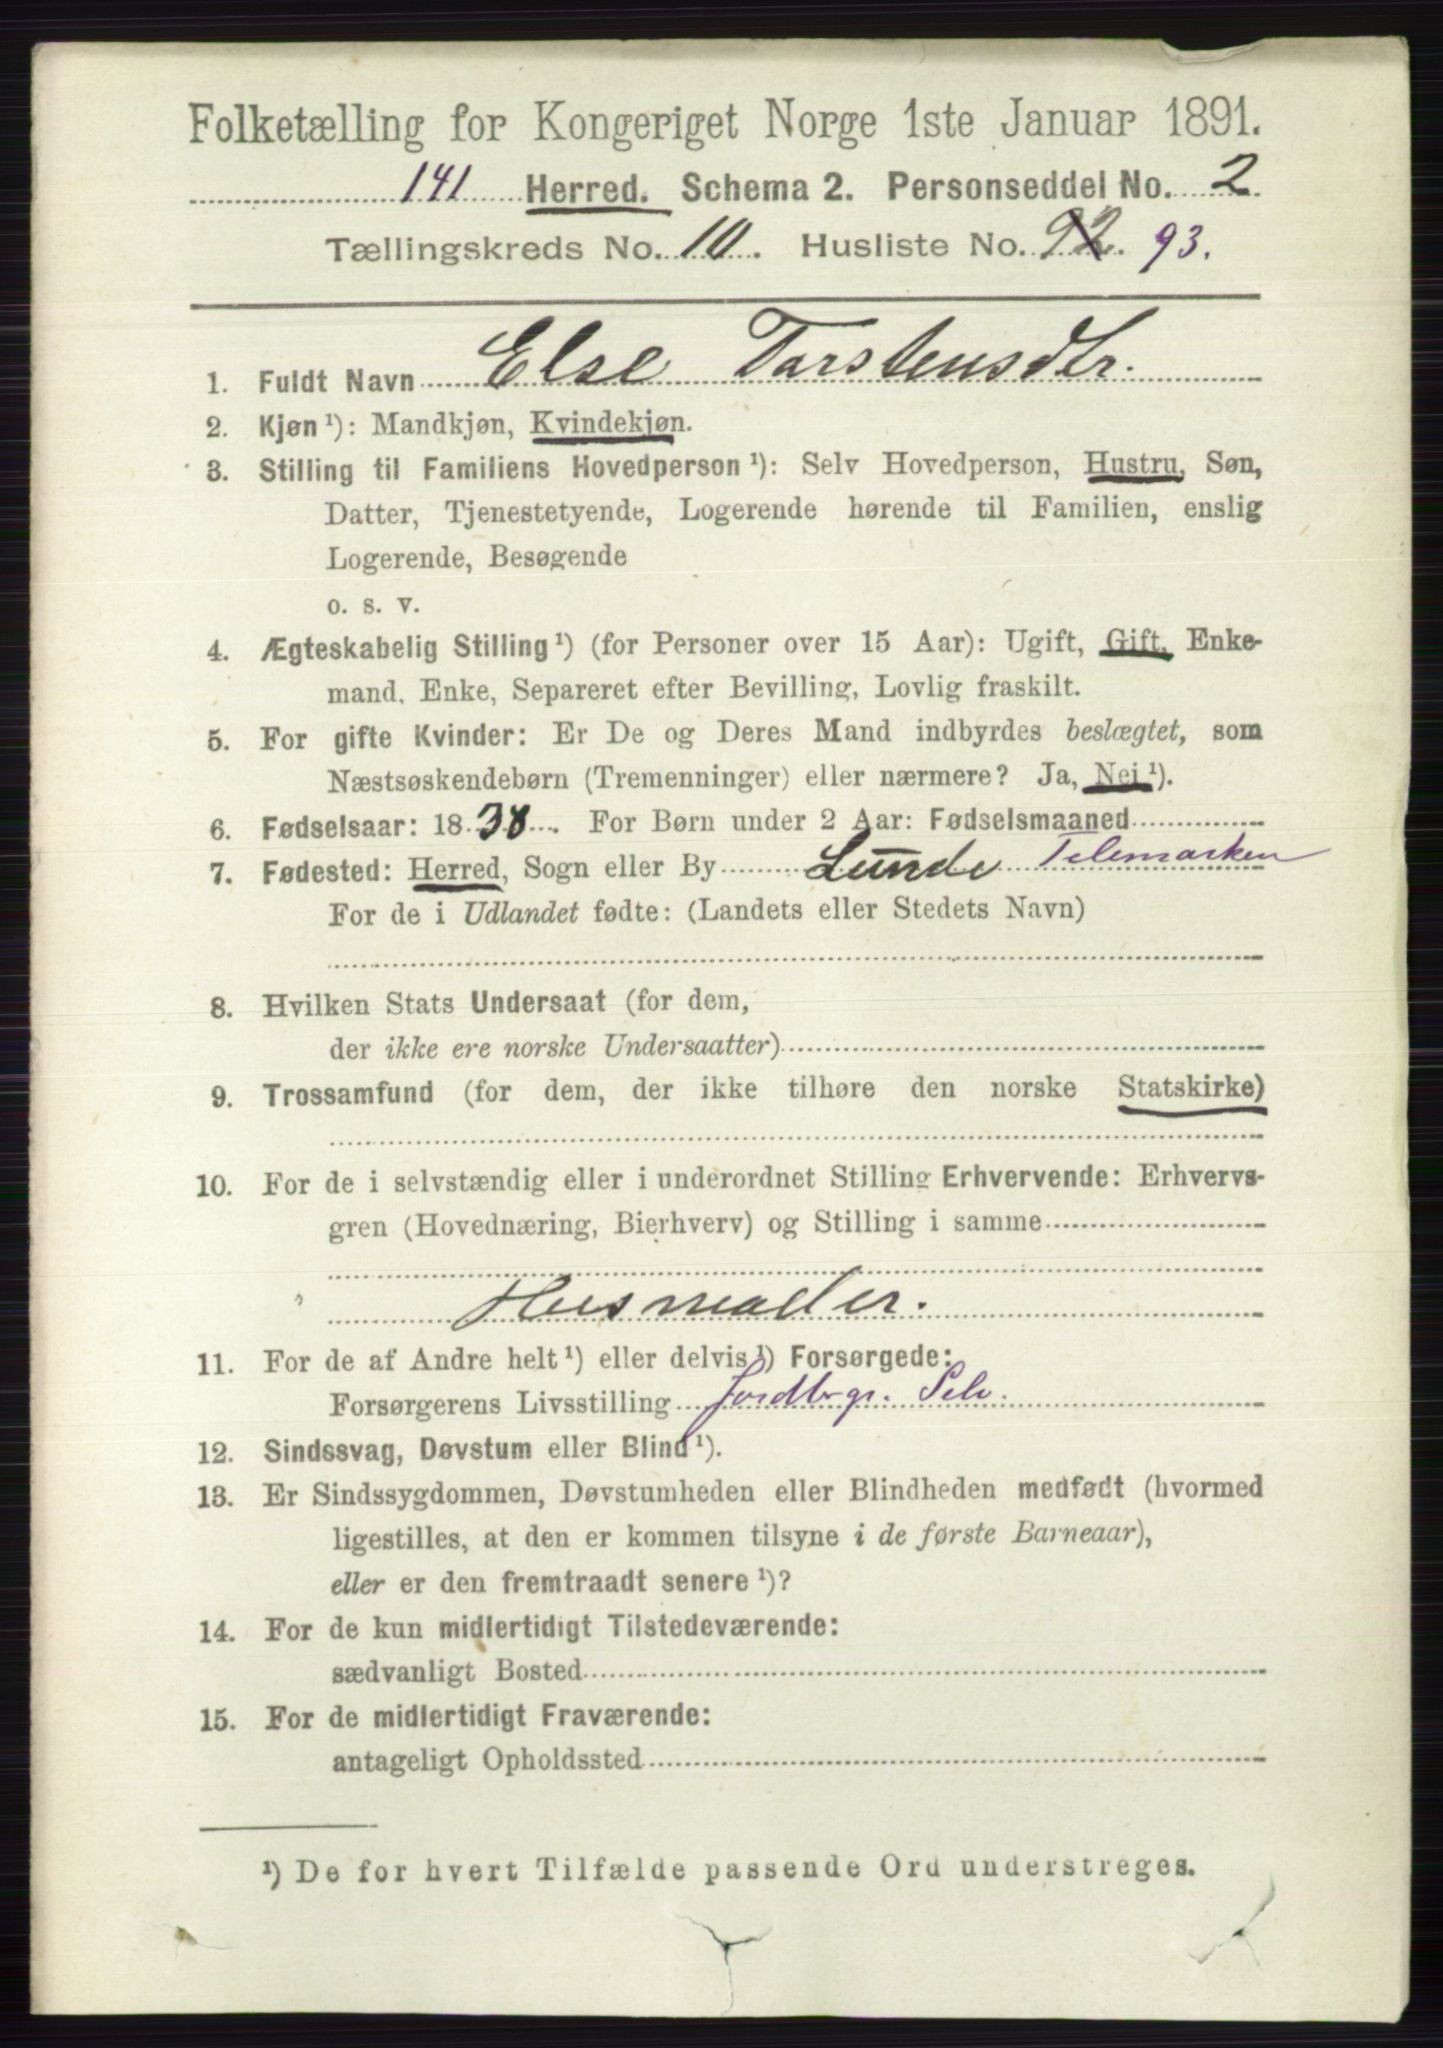 Folketælling for Kongeriget Norge 1ste Januar 1891.
141 Herred. Schema 2. Personseddel No. 2
Tællingskreds No. 10. Husliste No. 92. 93.
1. Fuldt Navn Else Tarstensdtr.
2. Kjøn ¹): Mandkjøn, Kvindekjøn.
3. Stilling til Familiens Hovedperson ¹): Selv Hovedperson, Hustru, Søn,
Datter, Tjenestetyende, Logerende hørende til Familien, enslig
Logerende, Besøgende
o. s. v.
4. Ægteskabelig Stilling ¹) (for Personer over 15 Aar): Ugift, Gift, Enke-
mand, Enke, Separeret efter Bevilling, Lovlig fraskilt.
5. For gifte Kvinder: Er De og Deres Mand indbyrdes beslægtet, som
Næstsøskendebørn (Tremenninger) eller nærmere? Ja, Nei ¹).
6. Fødselsaar: 1838. For Børn under 2 Aar: Fødselsmaaned
7. Fødested: Herred, Sogn eller By Lunde Telemarken
For de i Udlandet fødte: (Landets eller Stedets Navn)
8. Hvilken Stats Undersaat (for dem,
der ikke ere norske Undersaatter)
9. Trossamfund (for dem, der ikke tilhøre den norske Statskirke)
10. For de i selvstændig eller i underordnet Stilling Erhvervende: Erhvervs-
gren (Hovednæring, Bierhverv) og Stilling i samme
Husmoder.
11. For de af Andre helt ¹) eller delvis ¹) Forsørgede:
Forsørgerens Livsstilling Jordbgr. Selv.
12. Sindssvag, Døvstum eller Blind ¹).
13. Er Sindssygdommen, Døvstumheden eller Blindheden medfødt (hvormed
ligestilles, at den er kommen tilsyne i de første Barneaar),
eller er den fremtraadt senere ¹)?
14. For de kun midlertidigt Tilstedeværende:
sædvanligt Bosted
15. For de midlertidigt Fraværende:
antageligt Opholdssted
¹) De for hvert Tilfælde passende Ord understreges.